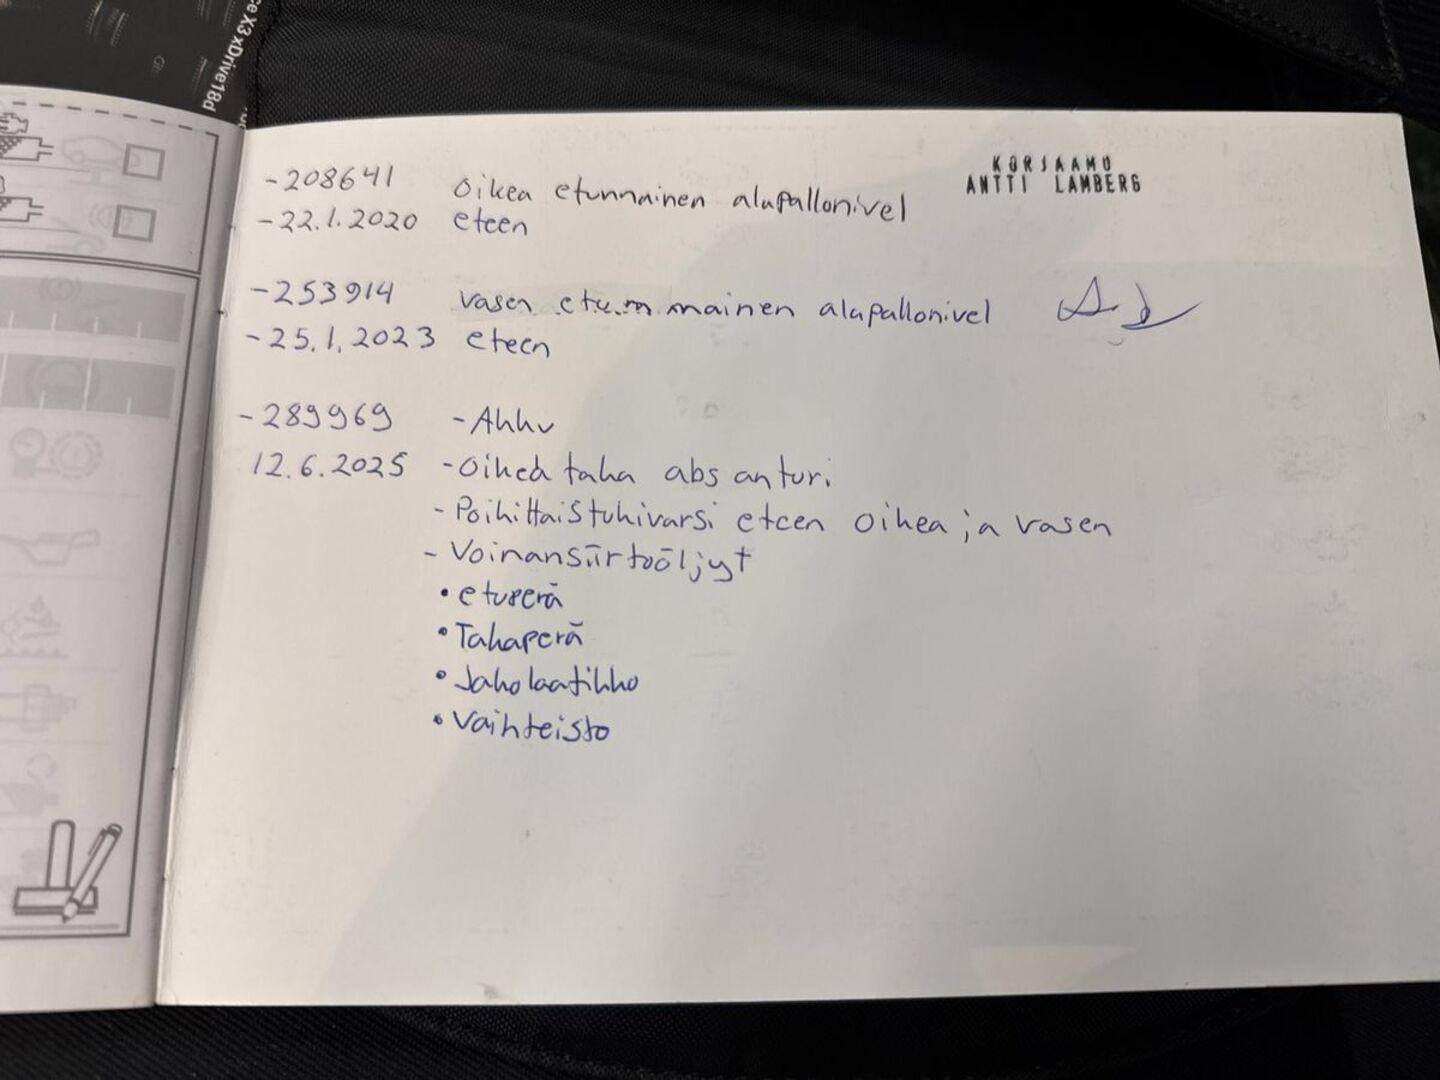 ceX3xDrive18d
KORJAAMO
ANTTI LAMBERG
-208641 oikea etummainen alapallonivel
-22.1.2020 eteen
-253914 vasen etummainen alapallonivel
-25.1.2023 eteen
-289969 -Akku
12.6.2025 -Oikea taka abs anturi
-Poikittaistukivarsi eteen oikea ja vasen
-Voimansiirtoöljyt
•etuperä
•Takaperä
•Jakolaatikko
•Vaihteisto